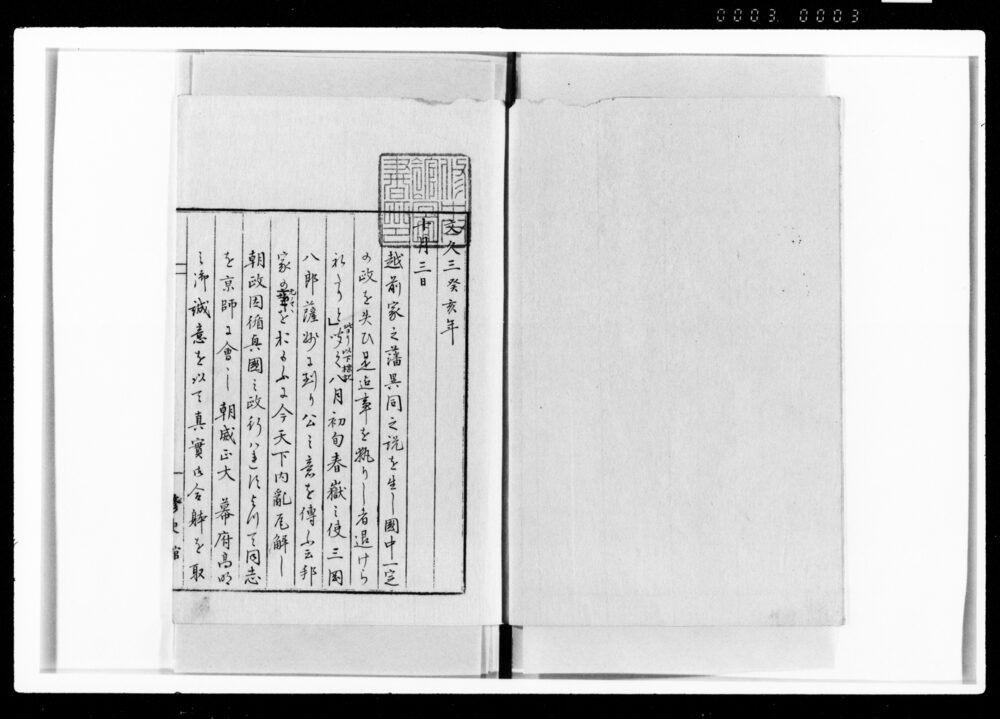 0003 0003
文久三癸亥年
十月三日
越前家之藩異同之説を生し國中一定
の政を失ひ是迠事を執りし者退けら
れたりと
此より以下標記
八月初旬春嶽之使三岡
八郎薩州に到り公之意を傳ふ云邦
家の を おもふに今天下内亂瓦解し
朝政因循真國之政行ハれす よつて同志
を京師に會し 朝威正大 幕府高明
之御誠意を以て真實御合躰を取
修史館